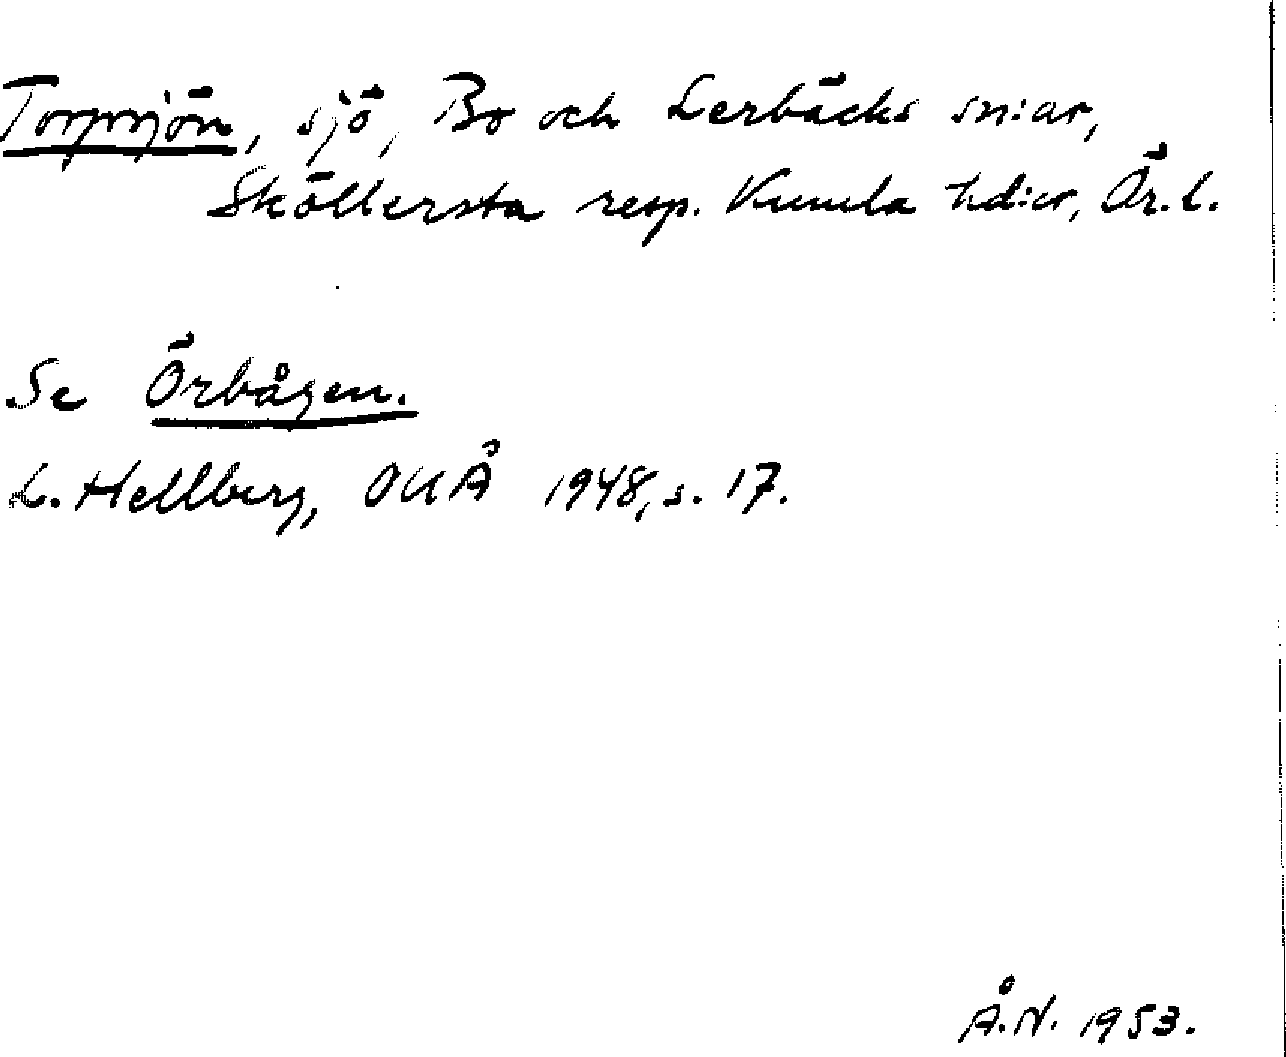 Torpsjön, sjö, Bo och Lerbäcks sn:ar,
Sköllersta resp. Kumla hd:er, Ör.l.
Se Örbågen.
L. Hellberg, OUÅ 1948, s. 17.
Å.N. 1953.